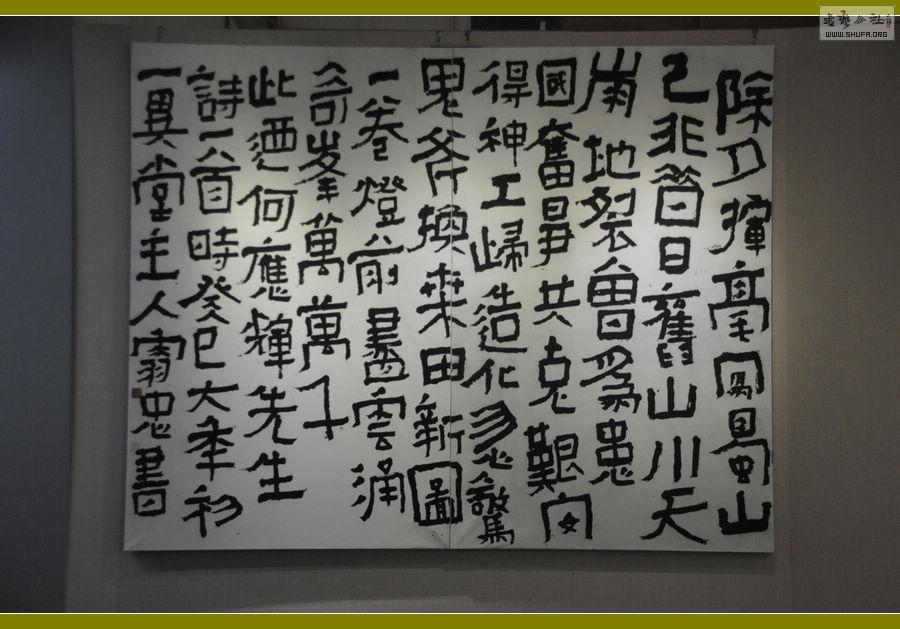 除夕揮毫寫蜀山
已非昔日舊山川天
崩地裂曾爲患
國奮昇共克艱安
得神工歸造化忽驚
鬼斧換桑田新圖
一卷燈前畫雲涌
奇峯萬萬千
此迺何應輝先生
詩一首時癸巳大年初
一異堂主人忠書
WWW.SHUFA.ORG